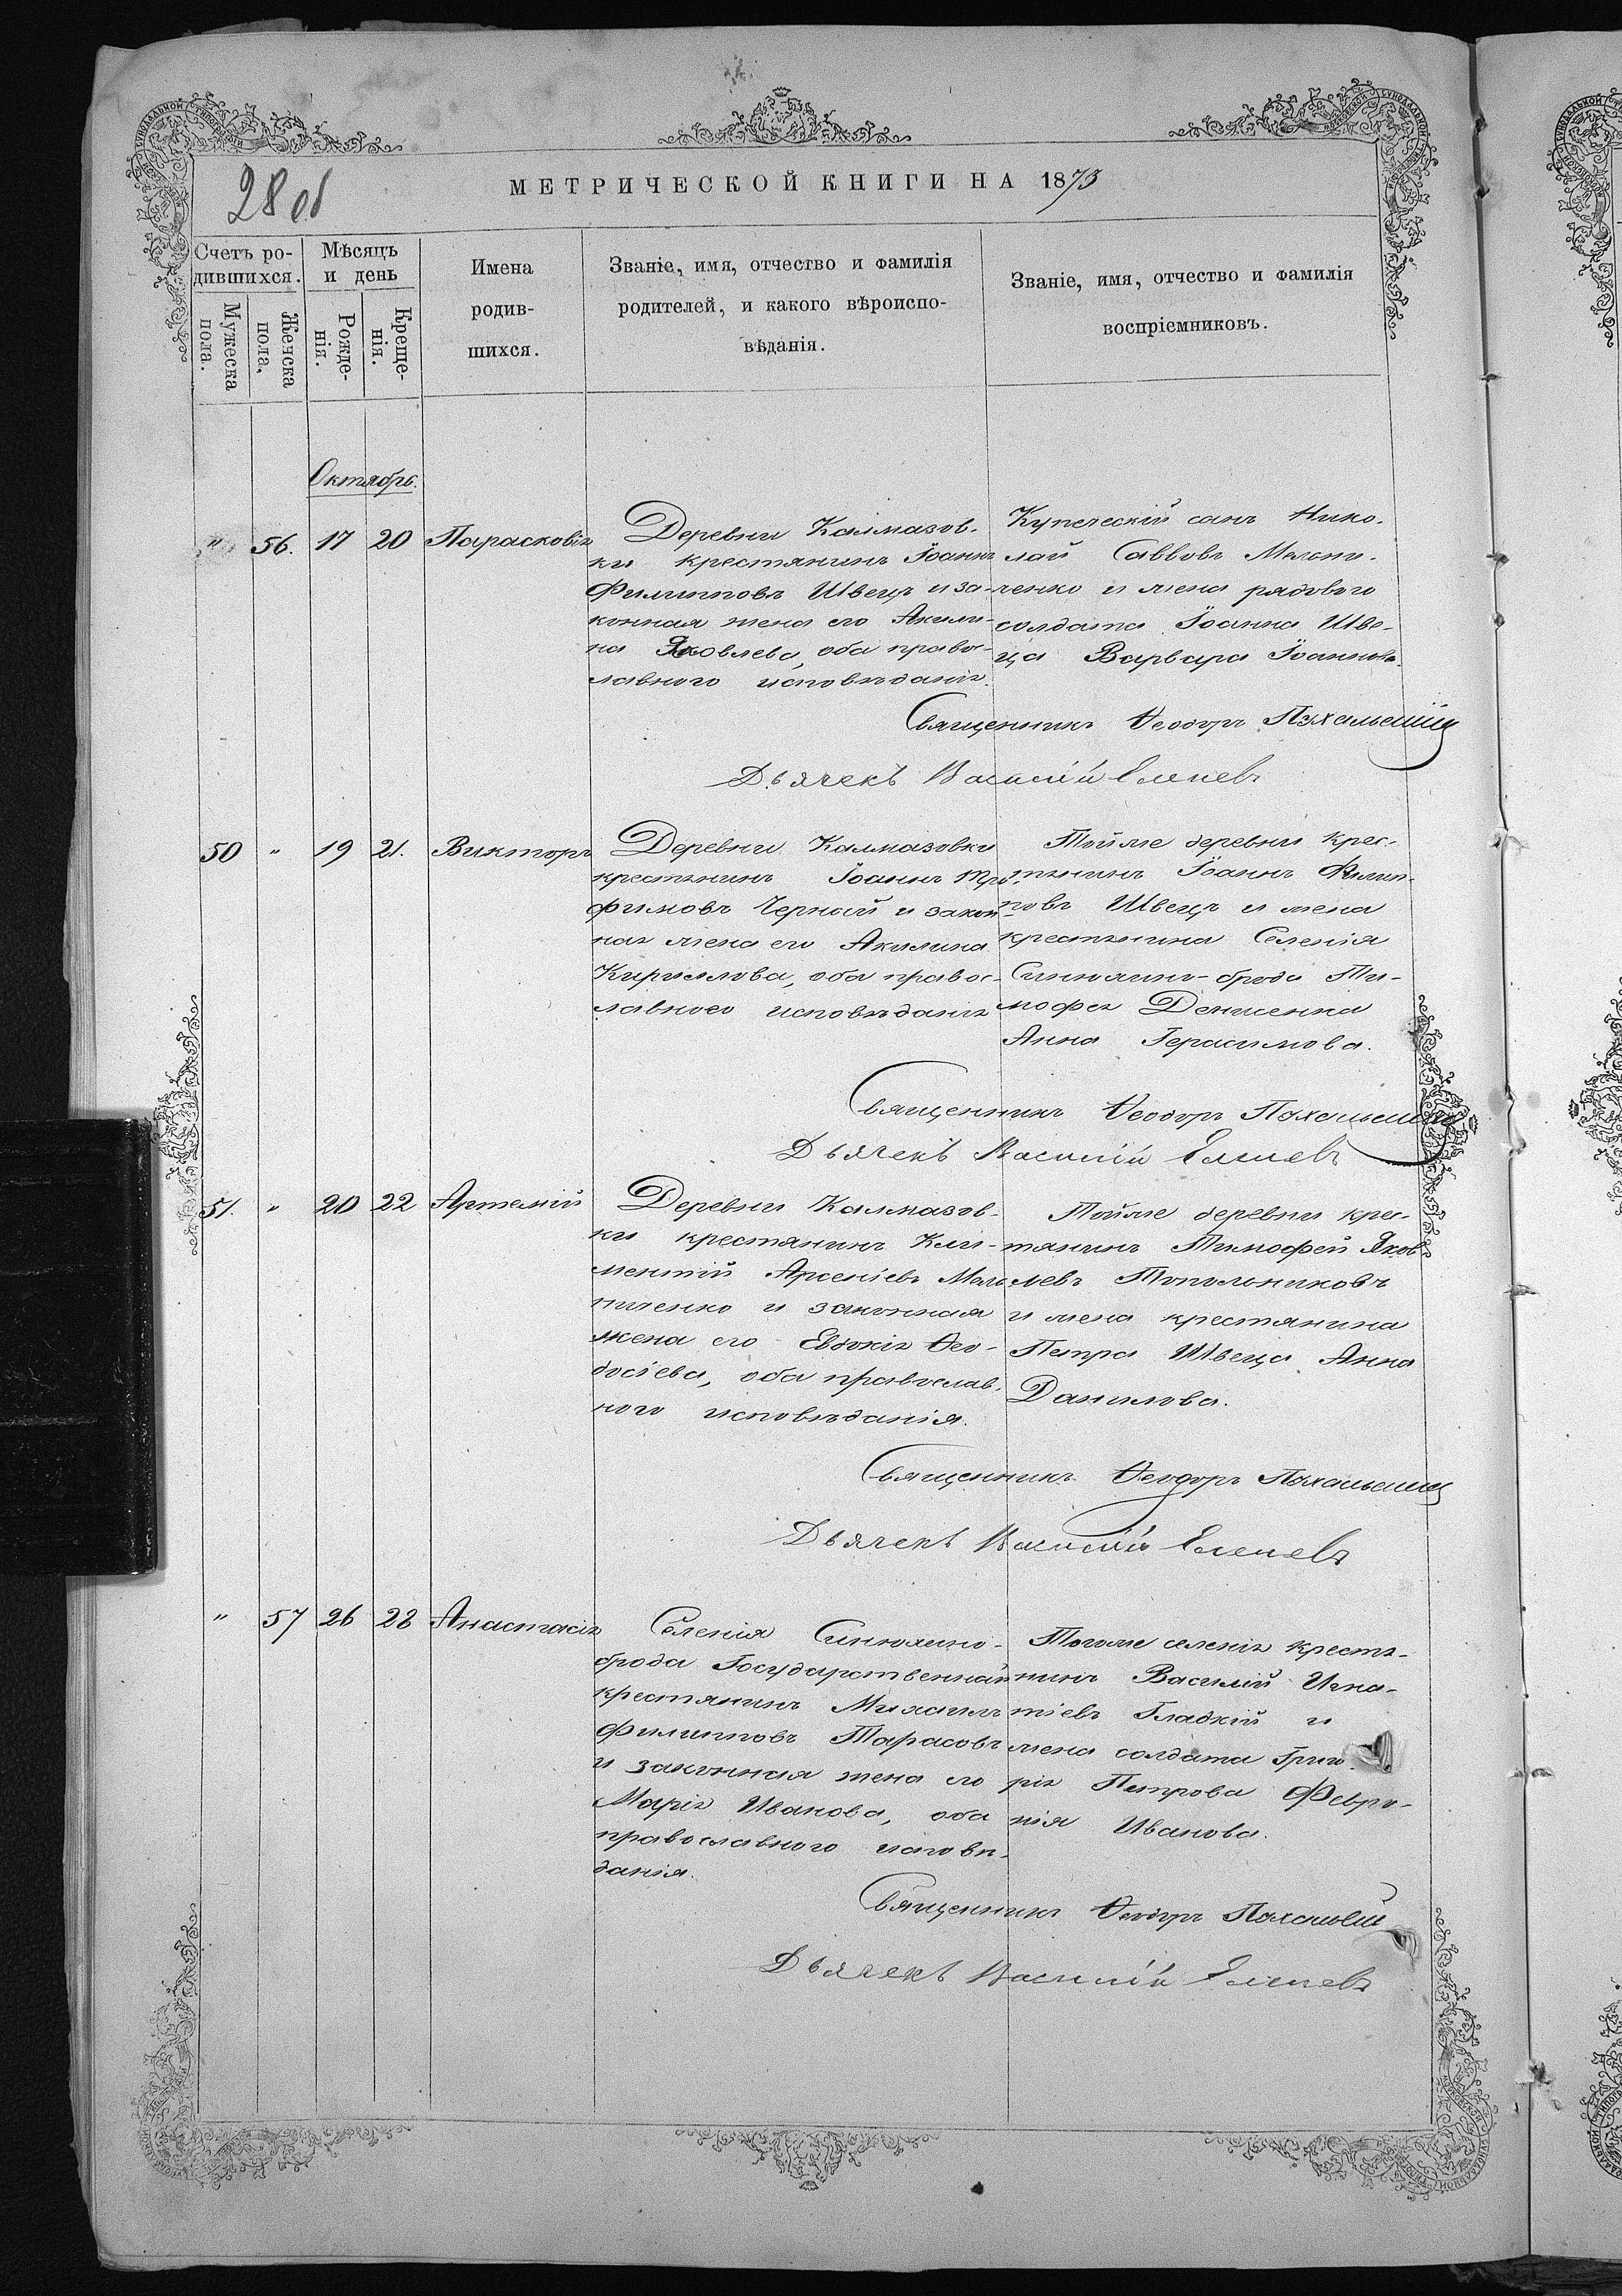 28 об
МЕТРИЧЕСКОЙ КНИГИ НА 1873
Счетъ ро-
дившихся.
Мѣсяцъ
и день
Мужеска
пола.
Женска
пола,
Рожде-
нія.
Креще-
нія.
Имена
родив-
шихся.
Званіе, имя, отчество и фамилія
родителей, и какого вѣроиспо-
вѣданія.
Званіе, имя, отчество и фамилія
воспріемниковъ.
Октябрь.
" 56. 17 20 Парасковія
Деревни Калмазов-
ки крестянинъ Іоаннъ
Филипповъ Швецъ и за-
конная жена его Акили-
на Яковлева, оба правос-
лавного исповѣданія.
Купеческій сынъ Нико-
лай Саввовъ Мельни-
ченко и жена рядового
солдата Іоанна Шве-
ца Варвара Іоаннова.
Священникъ Ѳеодоръ Пухальскій
Дьячекъ Василій Елинев
50 " 19 21. Викторъ
Деревни Калмазовки
крестянинъ Іоаннъ Тро-
фимовъ Черный и закон-
ная жена его Акилина
Кириллова, оба правос-
лавного исповѣданія
Тойже деревни крес-
тянинъ Іоаннъ Филип-
повъ Швецъ и жена
крестянина Селенія
Синюхинъ-брода Ти-
мофея Денисенка
Анна Герасимова.
Священникъ Ѳеодоръ Пухальскій
Дьячекъ Василій Елинев
51. " 20 22 Артемій
Деревни Калмазов-
ки крестянинъ Кли-
ментій Арсеніевъ Мель-
ниченко и законная
жена его Евдокія Ѳео-
досіева, оба православ-
ного исповѣданія.
Тойже деревни крес-
тянинъ Тимофей Яков-
левъ Топольниковъ
и жена крестянина
Петра Швеца Анна
Данилова.
Священникъ Ѳеодоръ Пухальскій
Дьячекъ Василій Елинев
" 57 26 28 Анастасія
Селенія Синюхино-
брода Государственный
крестянинъ Михаилъ
Филипповъ Тарасовъ
и законная жена его
Марія Иванова, оба
православного исповѣ-
данія.
Тогоже селенія крестя-
нинъ Василій Игна-
тіевъ Гладкій и
жена солдата Григо-
рія Петрова Февро-
нія Иванова.
Священникъ Ѳеодоръ Пухальскій
Дьячекъ Василій Елинев